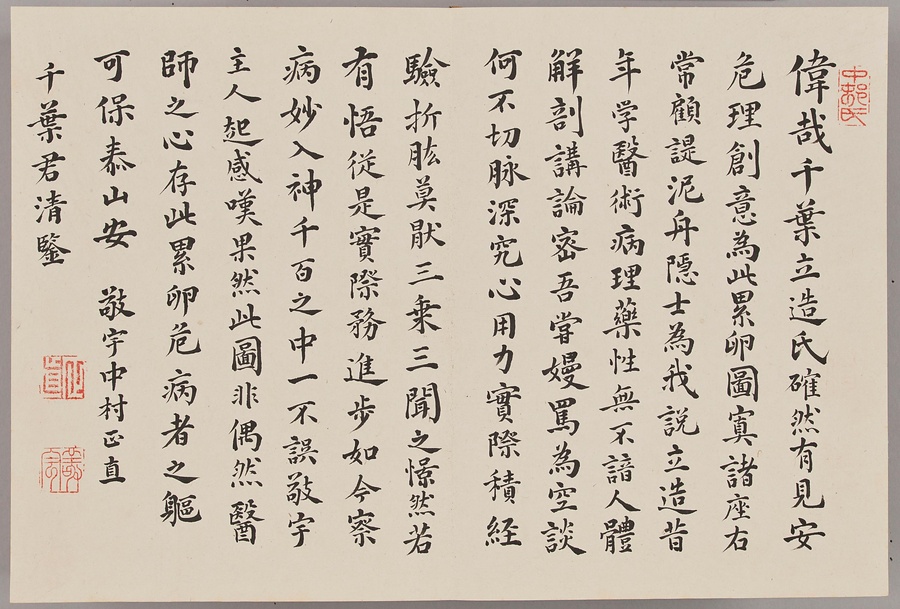 中邨氏
偉哉千葉立造氏確然有見安
危理創意為此累卵圖寘諸座右
常顧諟泥舟隱士為我説立造昔
年学醫術病理藥性無不諳人體
解剖講論密吾嘗嫚罵為空談
何不切脉深究心用力實際積経
驗折肱莫厭三乗三聞之憬然若
有悟従是實際務進歩如今察
病妙入神千百之中一不誤敬宇
主人起感嘆果然此圖非偶然醫
師之心存此累卵危病者之軀
可保泰山安 敬宇中村正直
千葉君清鑒
正直